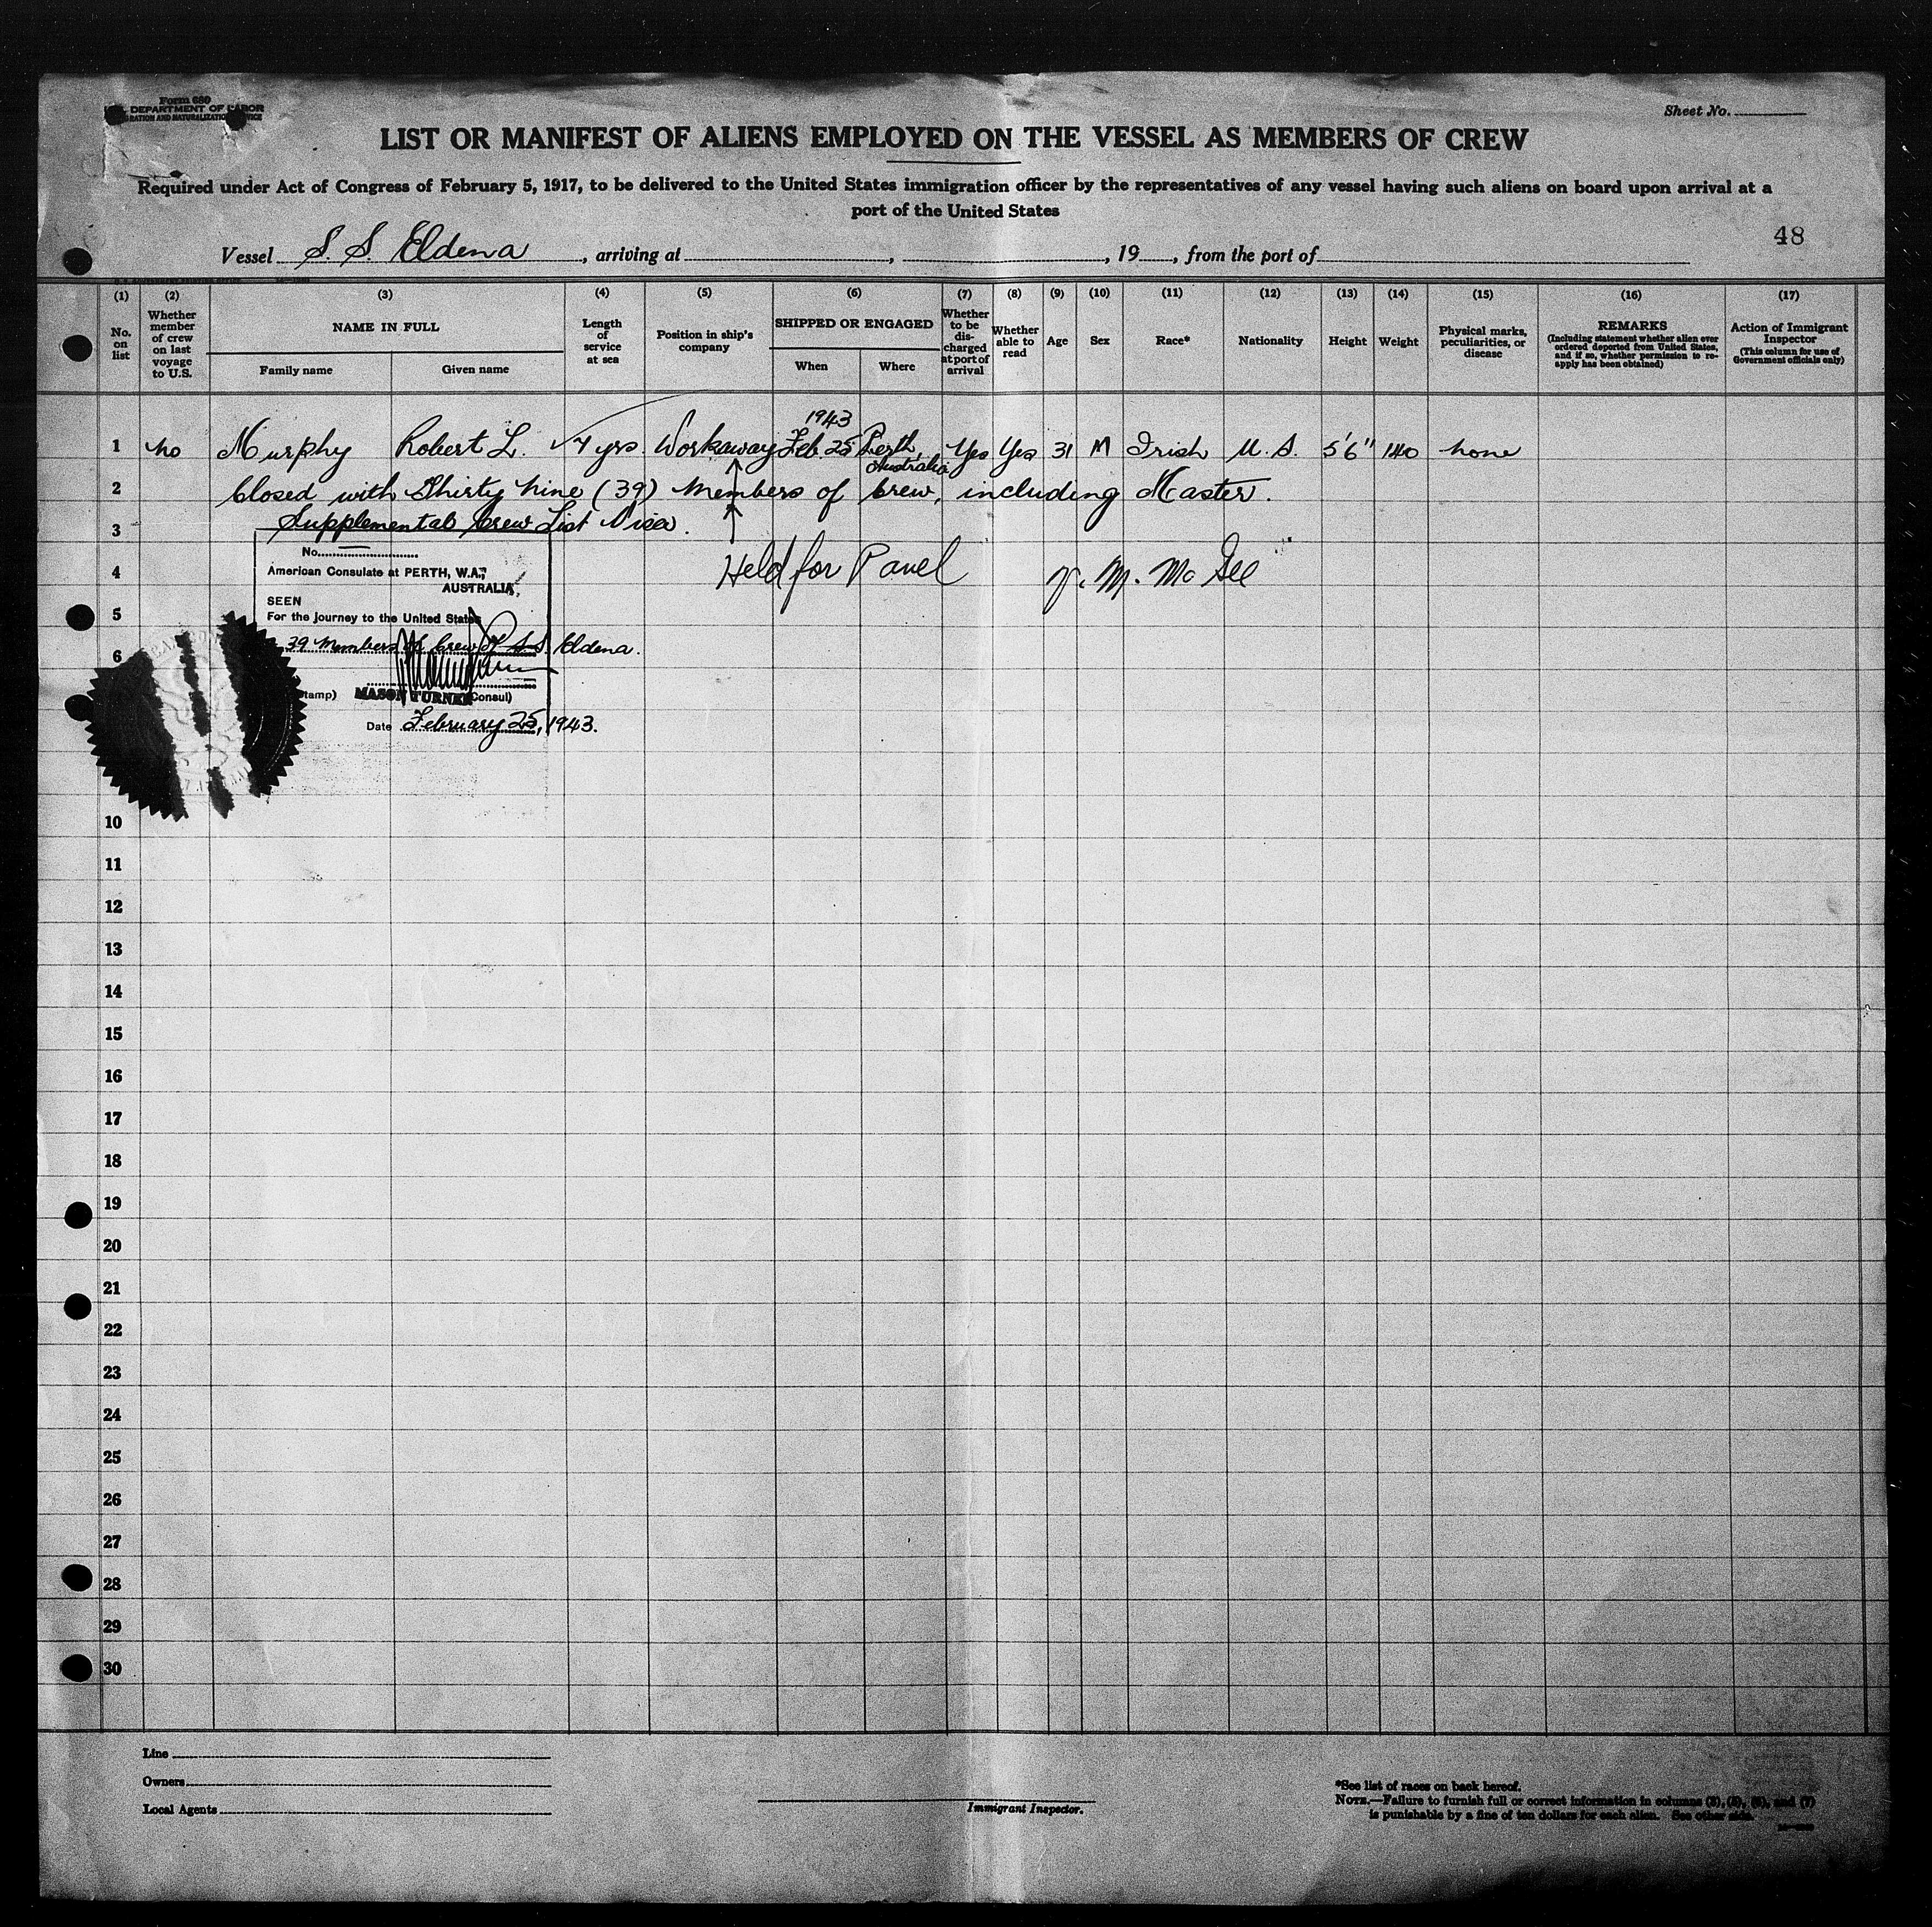 Form 680
DEPARTMENT OF LABOR
Sheet No.
LIST OR MANIFEST OF ALIENS EMPLOYED ON THE VESSEL AS MEMBERS OF CREW
Required under Act of Congress of February 5, 1917, to be delivered to the United States immigration officer by the representatives of any vessel having such aliens on board upon arrival at a
port of the United States
48
Vessel S. S. Eldena, arriving at , , 19 , from the port of
(1) (2) (3) (4) (5) (6) (7) (8) (9) (10) (11) (12) (13) (14) (15) (16) (17)
No. on list
Whether member of crew on last voyage to U.S.
NAME IN FULL
Family name
Given name
Length of service at sea
Position in ship's company
SHIPPED OR ENGAGED
When
Where
Whether to be discharged at port of arrival
Whether able to read
Age
Sex
Race*
Nationality
Height
Weight
Physical marks, peculiarities, or disease
REMARKS
(Including statement whether alien ever ordered deported from United States, and if so, whether permission to reapply has been obtained)
Action of Immigrant Inspector
(This column for use of Government officials only)
1943
1 no Murphy Robert L. 7 yrs. Workaway Feb. 25 Perth, Australia Yes Yes 31 M Irish U. S. 5'6" 140 none
2 Closed with Thirty Nine (39) Members of Crew, including Master.
3 Supplemental Crew List Visa.
No.
4 American Consulate at PERTH, W.A., Held for Panel
AUSTRALIA
SEEN
5 For the journey to the United States
6 39 Members of Crew of S.S. Eldena.
MASON TURNER (Consul)
Date February 25, 1943.
10
11
12
13
14
15
16
17
18
19
20
21
22
23
24
25
26
27
28
29
30
Line
Owners
Local Agents
Immigrant Inspector.
*See list of races on back hereof.
NOTE.—Failure to furnish full or correct information in columns (2), (5), (6), and (7)
is punishable by a fine of ten dollars for each alien. See other side.